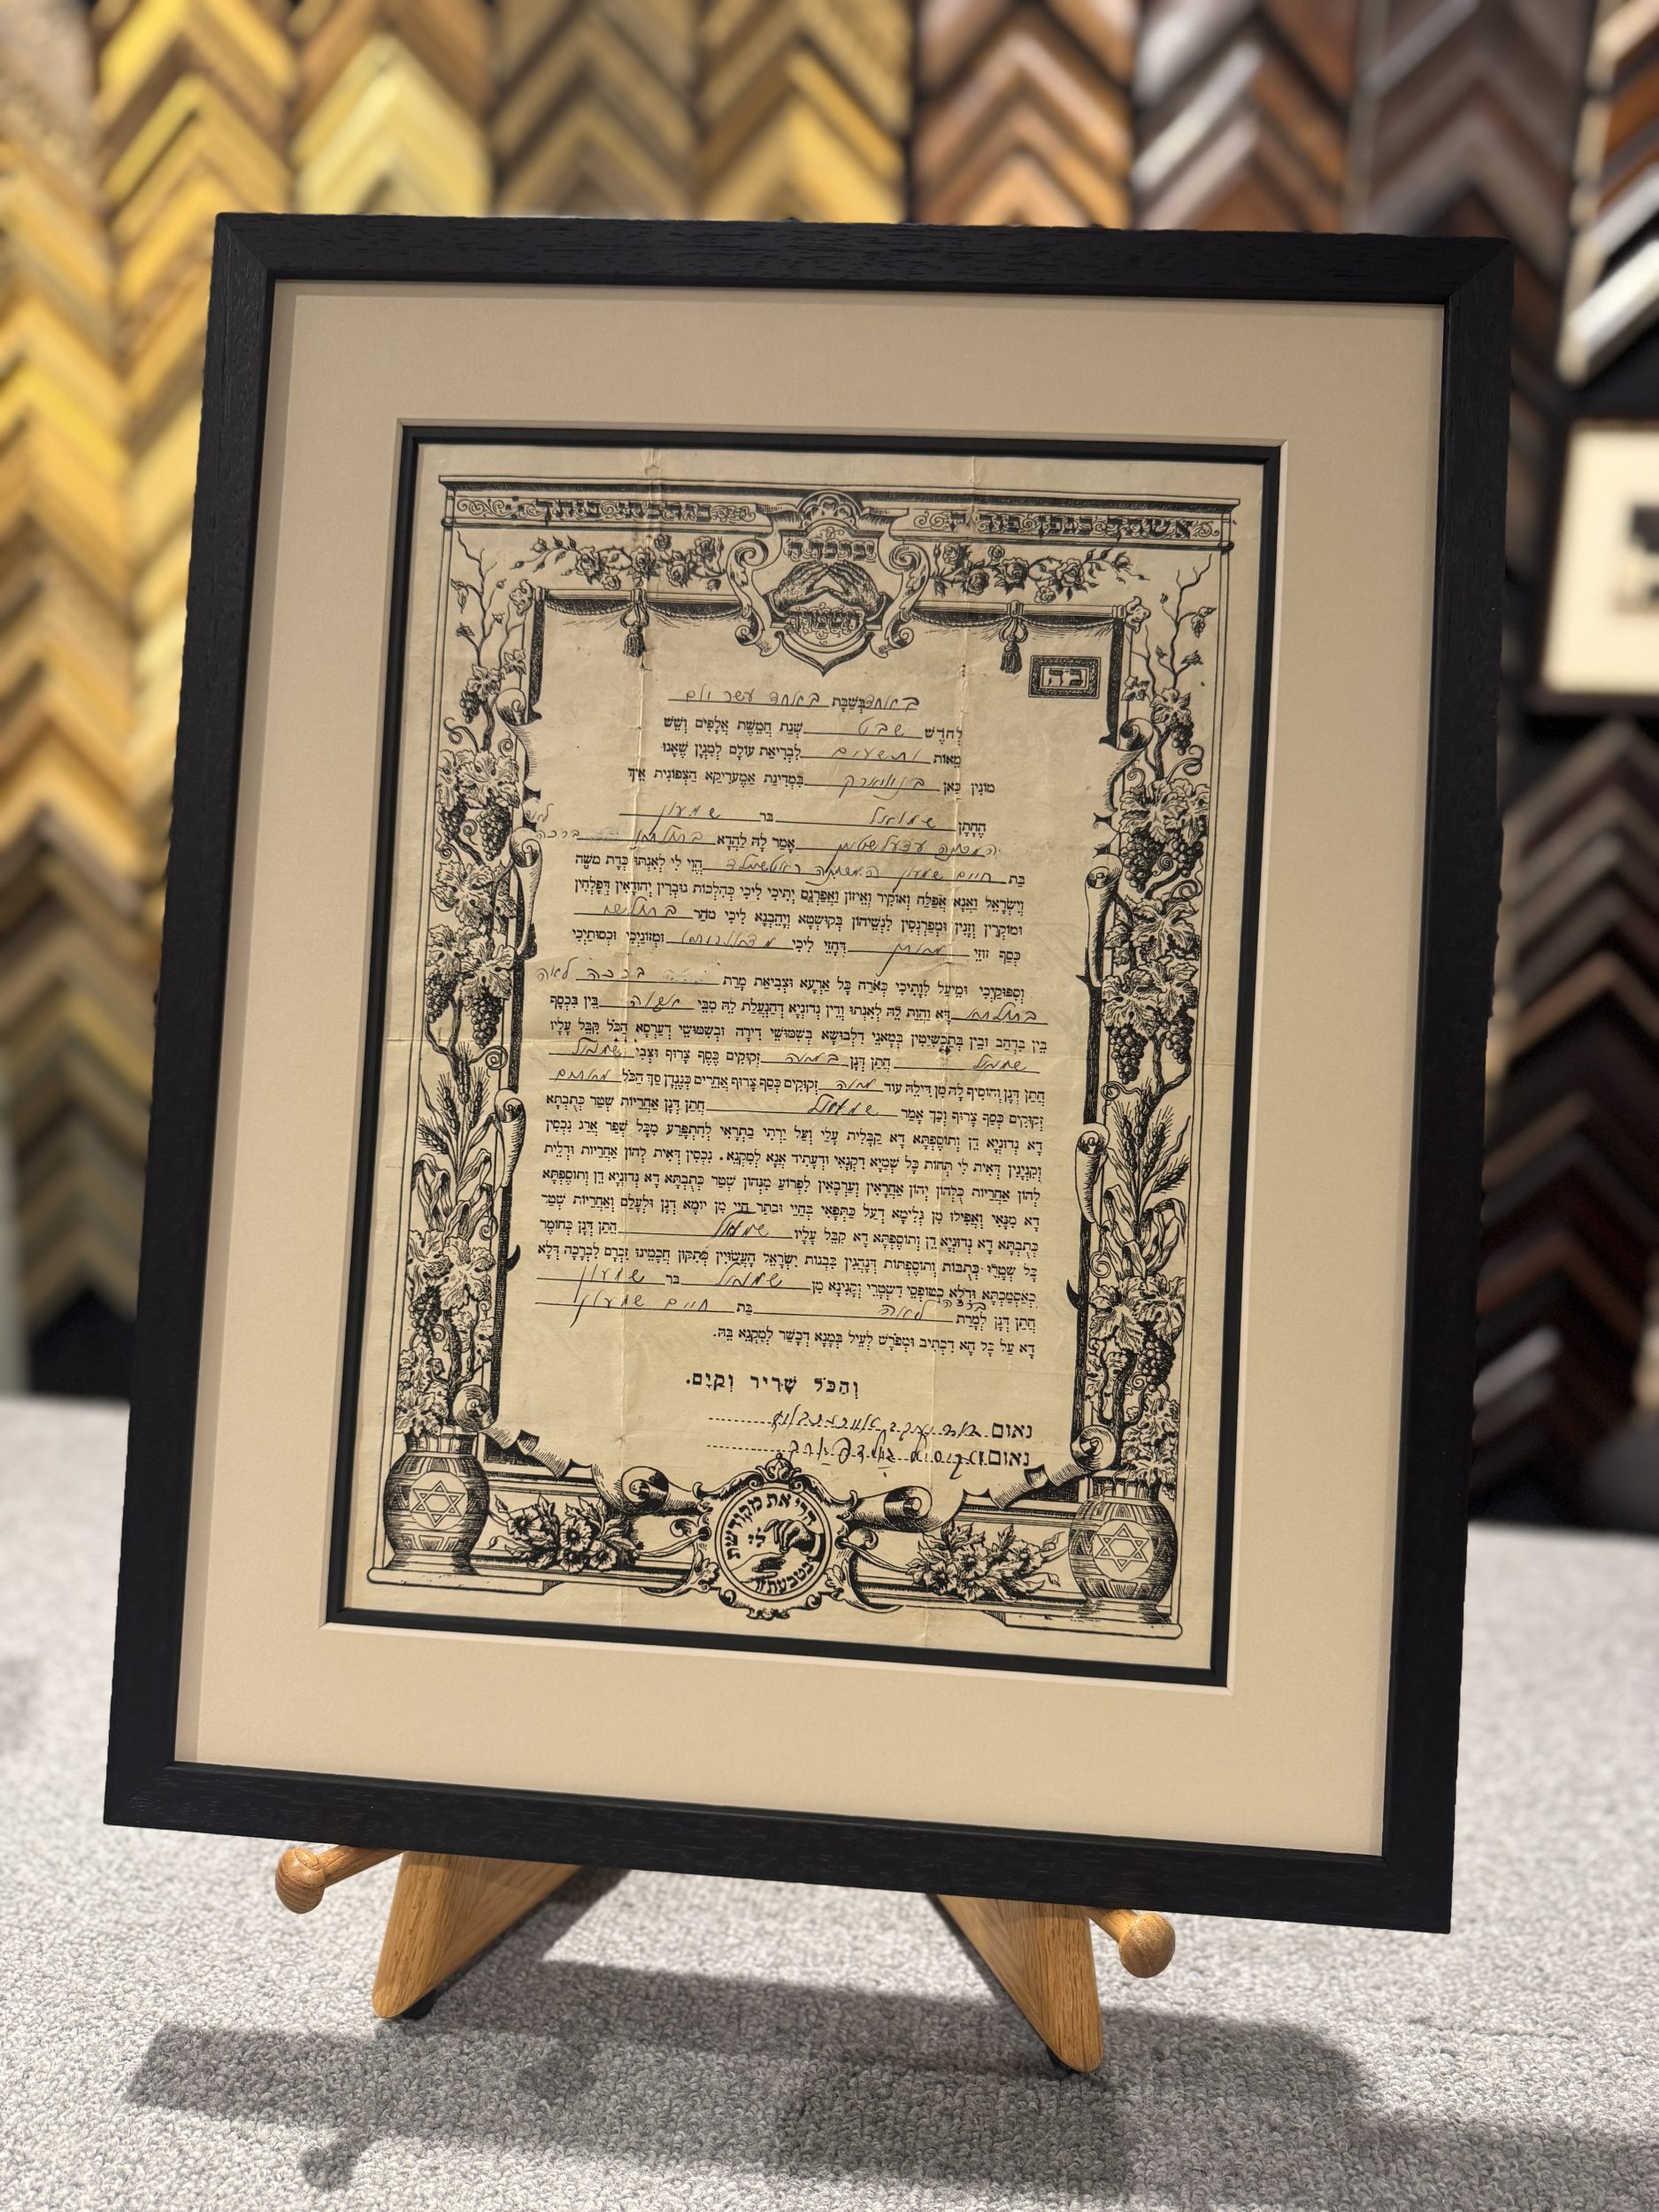 אשתך כגפן פוריה בירכתי ביתך
יברכך ה' וישמרך
בה
באחד בשבת באחד עשר יום
לְחֹדֶשׁ שבט שְׁנַת חֲמֵשֶׁת אֲלָפִים וְשֵׁשׁ
מֵאוֹת ותשעים לִבְרִיאַת עוֹלָם לְמִנְיָן שֶׁאָנוּ
מוֹנִין כַּאן בנויארק בִּמְדִינַת אַמֶערִיקַא הַצְפוֹנִית אֵיךְ
הֶחָתָן שמואל בר שמעון
המכונה אָמַר לָהּ לַהֲדָא בתולתא ברכה לאה
בַּת חיים שמעון המכונה הֲוִי לִי לְאִנְתּוּ כְּדַת מֹשֶׁה
וְיִשְׂרָאֵל וַאֲנָא אֶפְלַח וְאוֹקִיר וְאֵיזוֹן וַאֲפַרְנֵס יָתִיכִי לִיכִי כְּהִלְכוֹת גּוּבְרִין יְהוּדָאִין דְּפָלְחִין
וּמוֹקְרִין וְזָנִין וּמְפַרְנְסִין לִנְשֵׁיהוֹן בְּקוּשְׁטָא וְיָהֵבְנָא לִיכִי מֹהַר
כְּסַף זוּזֵי מאתן דְּחָזֵי לִיכִי מדאורייתא וּמְזוֹנַיְכִי וּכְסוּתַיְכִי
וְסִפּוּקַיְכִי וּמֵיעַל לְוָתֵיכִי כְּאֹרַח כָּל אַרְעָא וּצְבִיאַת מָרַת ברכה לאה
בתולתא דָּא וַהֲוַת לֵהּ לְאִנְתּוּ וְדֵין נְדוּנְיָא דְּהַנְעֵלַת לֵהּ מִבֵּי אבוה בֵּין בִּכְסַף
בֵּין בִּדְהַב וּבֵין בְּתַכְשִׁיטִין בְּמָאנֵי דִלְבוּשָׁא בְּשִׁמּוּשֵׁי דִירָה וּבְשִׁמּוּשֵׁי דְעַרְסָא הַכֹּל קִבֵּל עָלָיו
שמואל חֲתַן דְּנַן במאה זְקוּקִים כֶּסֶף צָרוּף וּצְבִי שמואל
חֲתַן דְּנַן וְהוֹסִיף לָהּ מִן דִּילֵהּ עוֹד מאה זְקוּקִים כֶּסֶף צָרוּף אֲחֵרִים כְּנֶגְדָּן סַךְ הַכֹּל מאתים
זְקוּקִים כֶּסֶף צָרוּף וְכָךְ אָמַר שמואל חֲתַן דְּנַן אַחֲרָיוּת שְׁטַר כְּתֻבְתָּא
דָא נְדוּנְיָא דֵן וְתוֹסֶפְתָּא דָא קַבְּלִית עָלַי וְעַל יָרְתַי בַּתְרָאַי לְהִתְפְּרַע מִכָּל שְׁפַר אֲרַג נִכְסִין
וְקִנְיָנִין דְּאִית לִי תְּחוֹת כָּל שְׁמַיָּא דִּקְנָאִי וּדְעָתִיד אֲנָא לְמִקְנֵא. נִכְסִין דְּאִית לְהוֹן אַחֲרָיוּת וּדְלֵית
לְהוֹן אַחֲרָיוּת כֻּלְּהוֹן יְהוֹן אַחֲרָאִין וְעַרְבָאִין לִפְרוֹעַ מִנְּהוֹן שְׁטַר כְּתֻבְתָּא דָא נְדוּנְיָא דֵן וְתוֹסֶפְתָּא
דָא מִנַּאי וַאֲפִילוּ מִן גְּלִימָא דְּעַל כַּתְפָאִי בְּחַיַּי וּבָתַר חַיַּי מִן יוֹמָא דְנַן וּלְעָלַם וְאַחֲרָיוּת שְׁטַר
כְּתֻבְתָּא דָא נְדוּנְיָא דֵן וְתוֹסֶפְתָּא דָא קִבֵּל עָלָיו שמואל חֲתַן דְּנַן כְּחוֹמֶר
כָּל שְׁטָרֵי כְּתֻבּוֹת וְתוֹסֶפְתּוֹת דְּנָהֲגִין בִּבְנוֹת יִשְׂרָאֵל הָעֲשׂוּיִין כְּתִקּוּן חֲכָמֵינוּ זִכְרָם לִבְרָכָה דְּלָא
כְּאַסְמַכְתָּא וּדְלָא כְּטוֹפְסֵי דִשְׁטָרֵי וְקָנִינָא מִן שמואל בר שמעון
חֲתַן דְּנַן לְמָרַת ברכה לאה בַּת חיים שמעון
דָא עַל כָּל הָא דִּכְתִיב וּמְפֹרָשׁ לְעֵיל בְּמָנָא דְּכָשֵׁר לְמִקְנֵא בֵּהּ.
וְהַכֹּל שָׁרִיר וְקַיָּם.
נאום
נאום
הרי את מקודשת לי בטבעת זו